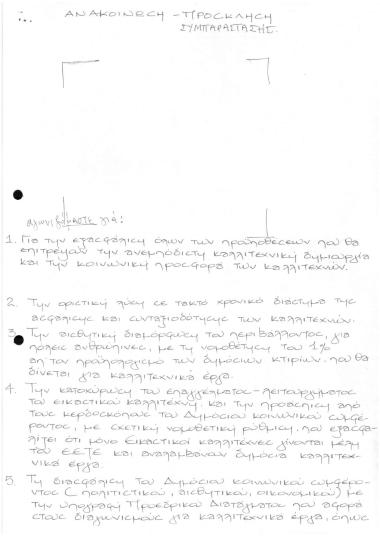 ΑΝΑΚΟΙΝΩΣΗ - ΠΡΟΣΚΛΗΣΗ
ΣΥΜΠΑΡΑΣΤΑΣΗΣ
αγωνιζόμαστε γιά:
1. Για την εξασφάλιση όλων των προϋποθέσεων που θα
επιτρέψουν την ανεμπόδιστη καλλιτεχνική δημιουργία
και την κοινωνική προσφορά των καλλιτεχνών.
2. Την οριστική λύση σε τακτό χρονικό διάστημα της
ασφάλισης και συνταξιοδότησης των καλλιτεχνών.
3. Την αισθητική διαμόρφωση του περιβάλλοντος, για
πόλεις ανθρώπινες, με τη νομοθέτηση του 1%
απ τον προϋπολογισμό των δημόσιων κτιρίων. που θα
δίνεται για καλλιτεχνικά έργα.
4. Την κατοχύρωση του επαγγέλματος-λειτουργήματος
του εικαστικού καλλιτέχνη και την προάσπιση από
τους κερδοσκόπους του Δημόσιου κοινωνικού συμφέ-
ροντος, με σχετική νομοθετική ρύθμιση. που εξασφα-
λίζει ότι μόνο Εικαστικοί καλλιτέχνες γίνονται μέλη
του ΕΕΤΕ και αναλαμβάνουν δημόσια καλλιτεχ-
νικά έργα.
5. Τη διασφάλιση του Δημόσιου κοινωνικού συμφέρο-
ντος (πολιτιστικού, αισθητικού, οικονομικού) με
την υπογραφή Προεδρικού Διατάγματος που αφορά
στους διαγωνισμούς για καλλιτεχνικά έργα, όπως